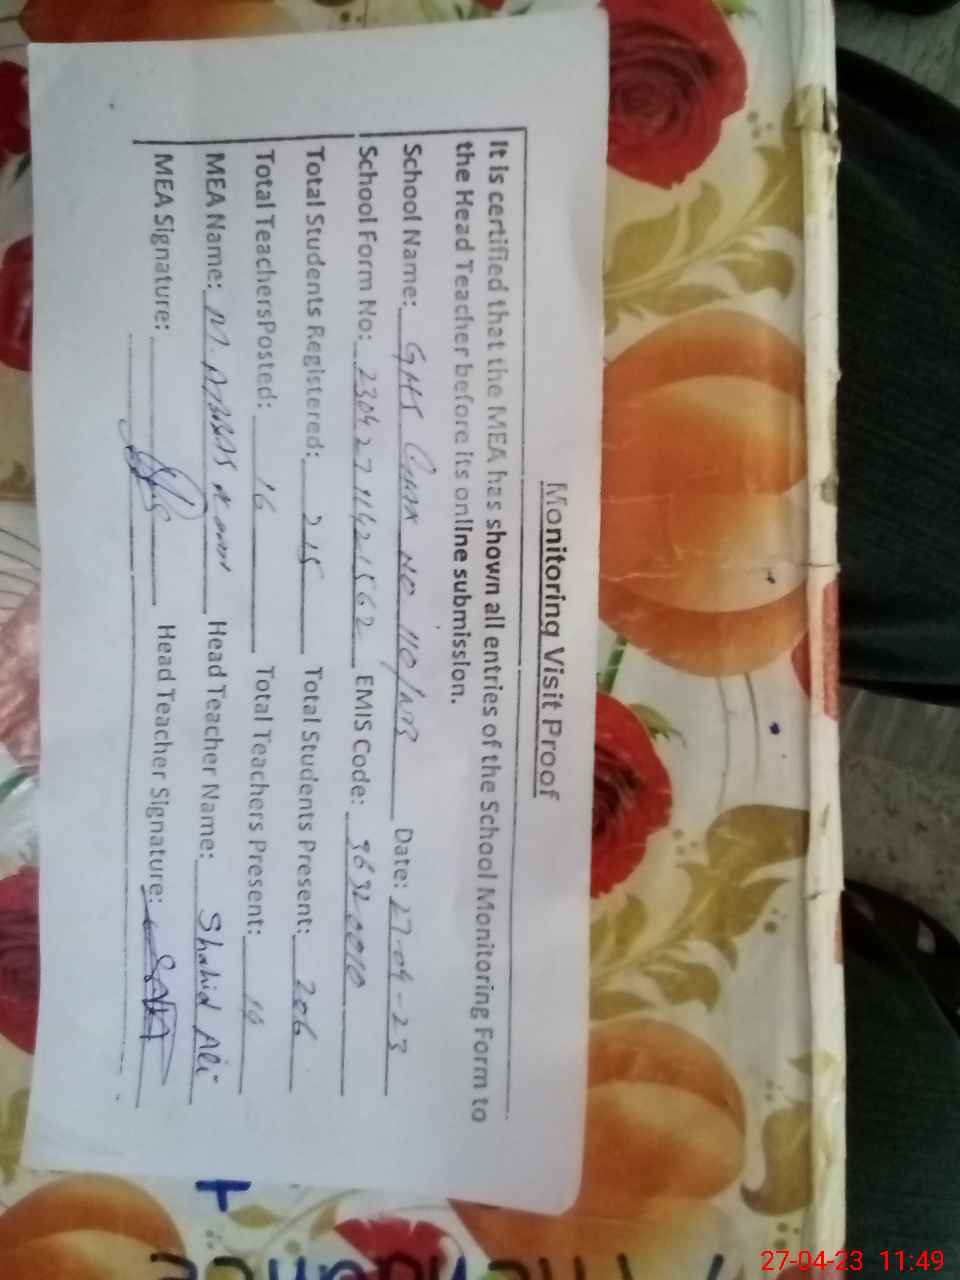 Monitoring Visit Proof
It is certified that the MEA has shown all entries of the School Monitoring Form to
the Head Teacher before its online submission.
School Name: GHS Chak NO 110/ Date: 27-04-23
School Form No: 23042711421562 EMIS Code: 36320010
Total Students Registered: 215 Total Students Present: 206
Total TeachersPosted: 16 Total Teachers Present:
MEA Name: M. ABBAS Head Teacher Name: Shahid Ali
MEA Signature: Head Teacher Signature:
27-04-23 11:49